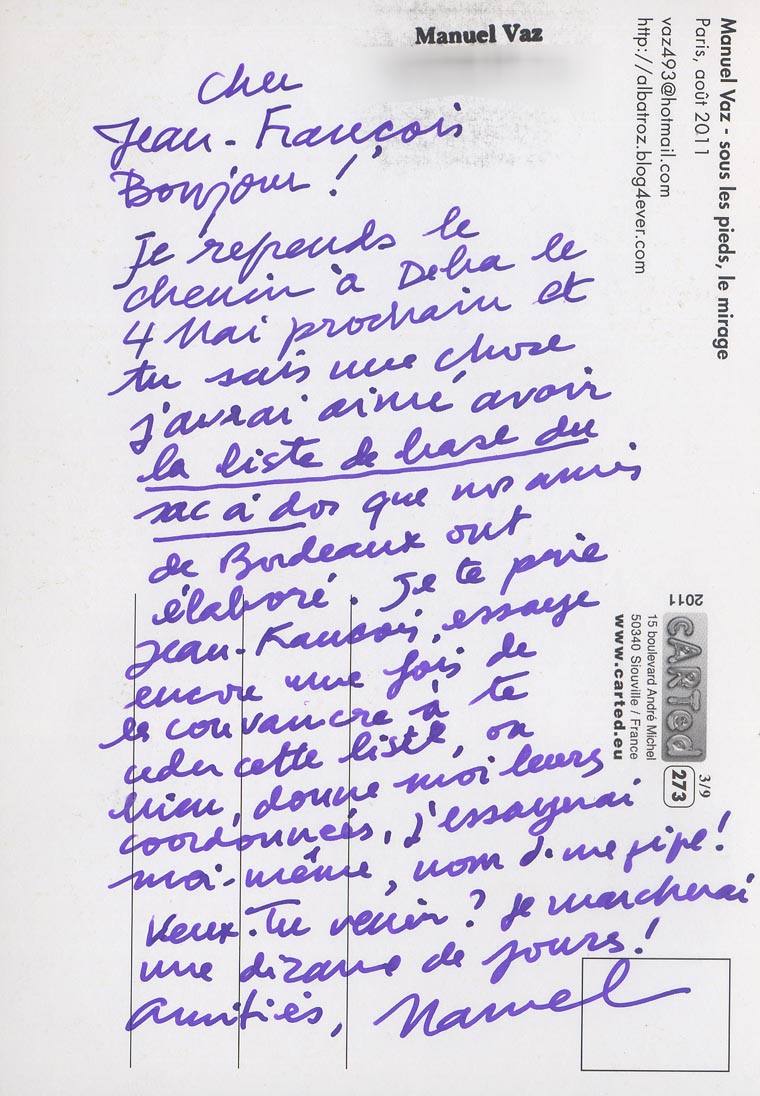 Manuel Vaz
Cher
Jean-François
Bonjour !
Je reprends le
chemin à Deba le
4 Mai prochain et
tu sais une chose
j'avrai aimé avoir
la liste de base du
sac à dos que nos amis
de Bordeaux ont
élaboré. Je te prie
Jean-François, essaye
encore une fois de
les convaincre à te
céder cette liste, ou
bien, donne moi leurs
coordonnées, j'essayerai
moi-même, nom d'une pipe !
Veux-Tu venir ? Je marcherai
une dizaine de jours !
Amitiés, Manuel
Manuel Vaz - sous les pieds, le mirage
Paris, août 2011
vaz493@hotmail.com
http://albatroz.blog4ever.com
2011
CARTED
15 boulevard André Michel
50340 Siouville / France
www.carted.eu
3/9
273